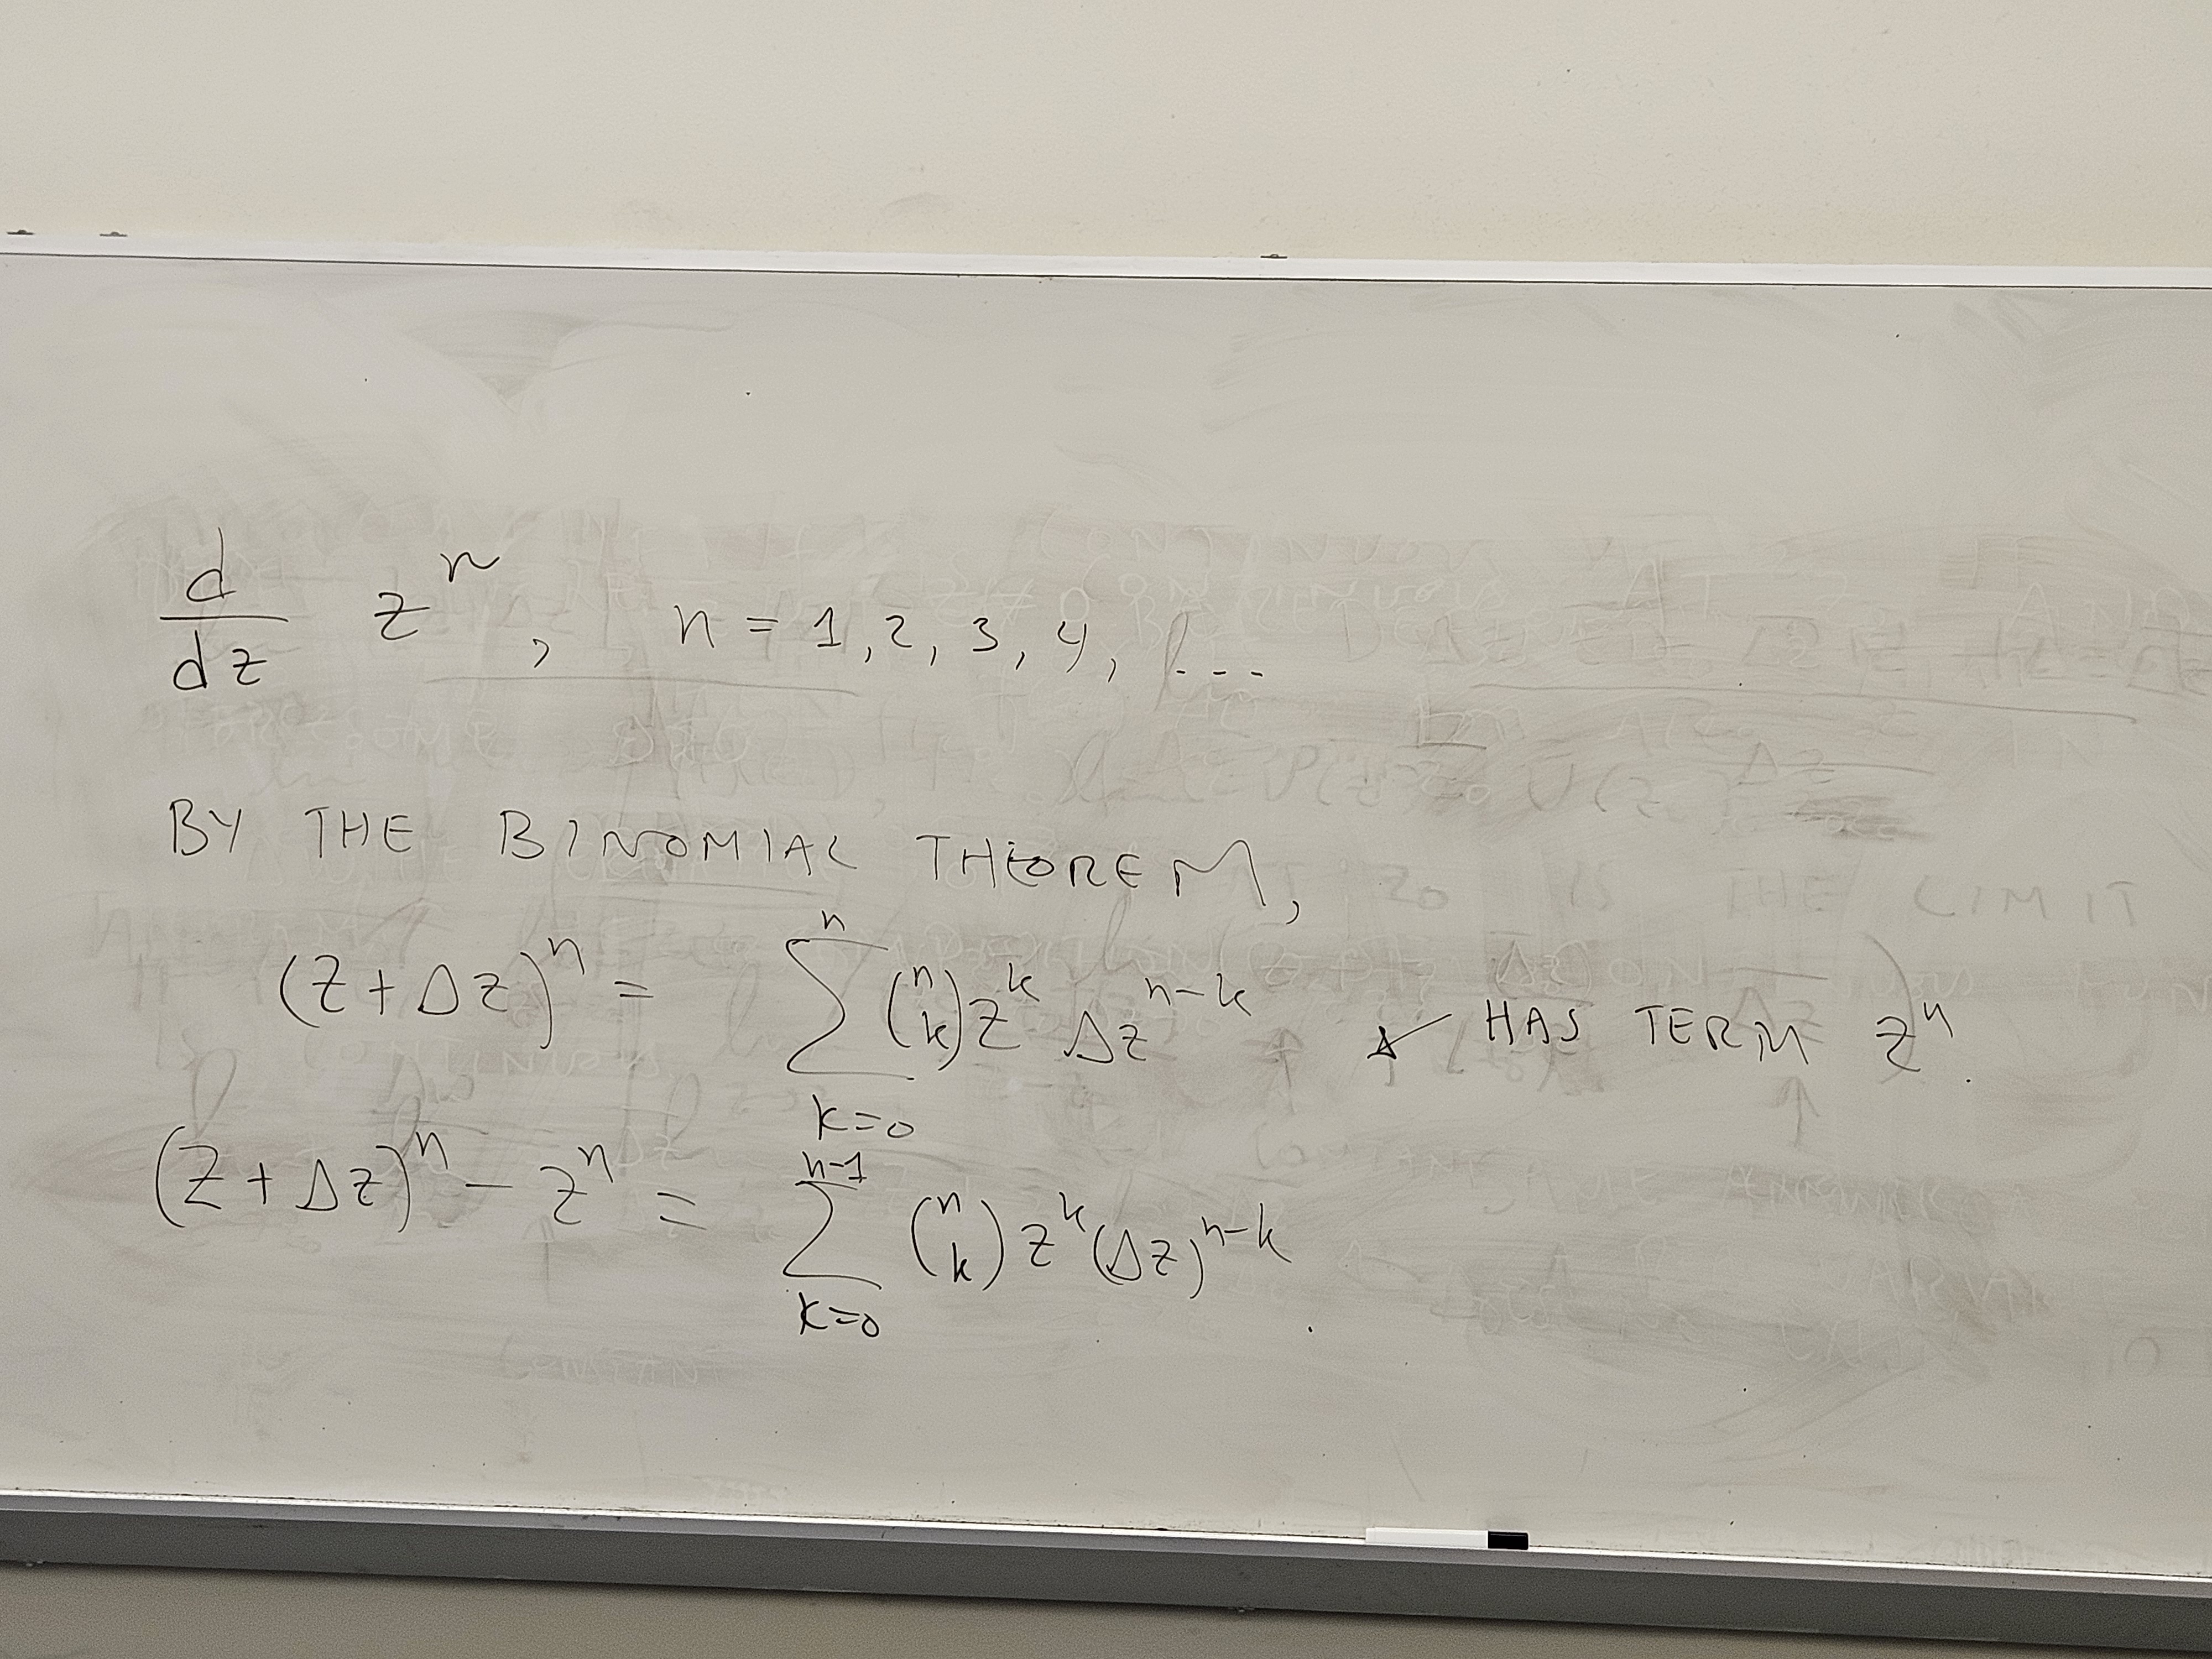 d/dz zⁿ, n = 1, 2, 3, 4, ...
BY THE BINOMIAL THEOREM,
(z+Δz)ⁿ = ∑_{k=0}^{n} (n k) z^k Δz^{n-k} ← HAS TERM zⁿ.
(z+Δz)ⁿ − zⁿ = ∑_{k=0}^{n-1} (n k) z^k (Δz)^{n-k}.